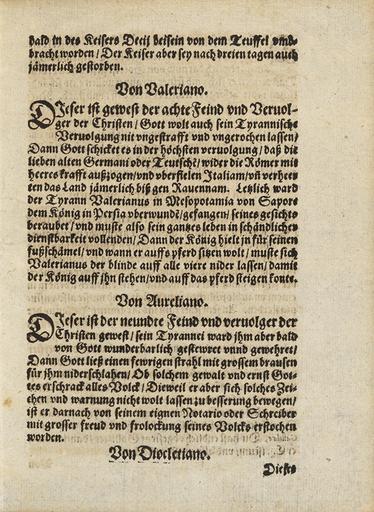 bald in des Keisers Decij beisein von dem Teuffel vmb-
bracht worden / Der Keiser aber sey nach dreien tagen auch
jämerlich gestorben.
Von Valeriano.
DIeser ist gewest der achte Feind vnd Veruol-
ger der Christen / Gott wolt auch sein Tyrannische
Veruolgung nit vngestrafft vnd vngerochen lassen /
Dann Gott schicket es in der höchsten veruolgung / daß die
lieben alten Germani oder Teutsche / wider die Römer mit
heeres krafft außzogen / vnd vberfielen Italiam / vñ verheer
ten das Land jämerlich biß gen Rauennam. Letzlich ward
der Tyrann Valerianus in Mesopotamia von Sapore
dem König in Persia vberwundẽ / gefangen / seines gesichts
beraubet / vnd muste also sein gantzes leben in schändlicher
dienstbarkeit vollenden / Dann der König hielt jn für seinen
fußschämel / vnd wann er auffs pferd sitzen wolt / muste sich
Valerianus der blinde auff alle viere nider lassen / damit
der König auff jhn stehen / vnd auff das pferd steigen konte.
Von Aureliano.
DIeser ist der neundte Feind vnd veruolger der
Christen gewest / sein Tyrannei ward jhm aber bald
von Gott wunderbarlich gestewret vnnd gewehret /
Dann Gott ließ einen fewrigen strahl mit grossem brausen
für jhm niderschlahen / Ob solchem gewalt vnd ernst Got-
tes erschrack alles Volck / Dieweil er aber sich solches Zei-
chen vnd warnung nicht wolt lassen zu besserung bewegen /
ist er darnach von seinem eignen Notario oder Schreiber
mit grosser freud vnd frolockung seines Volcks erstochen
worden.
Von Diocletiano.
Dieses